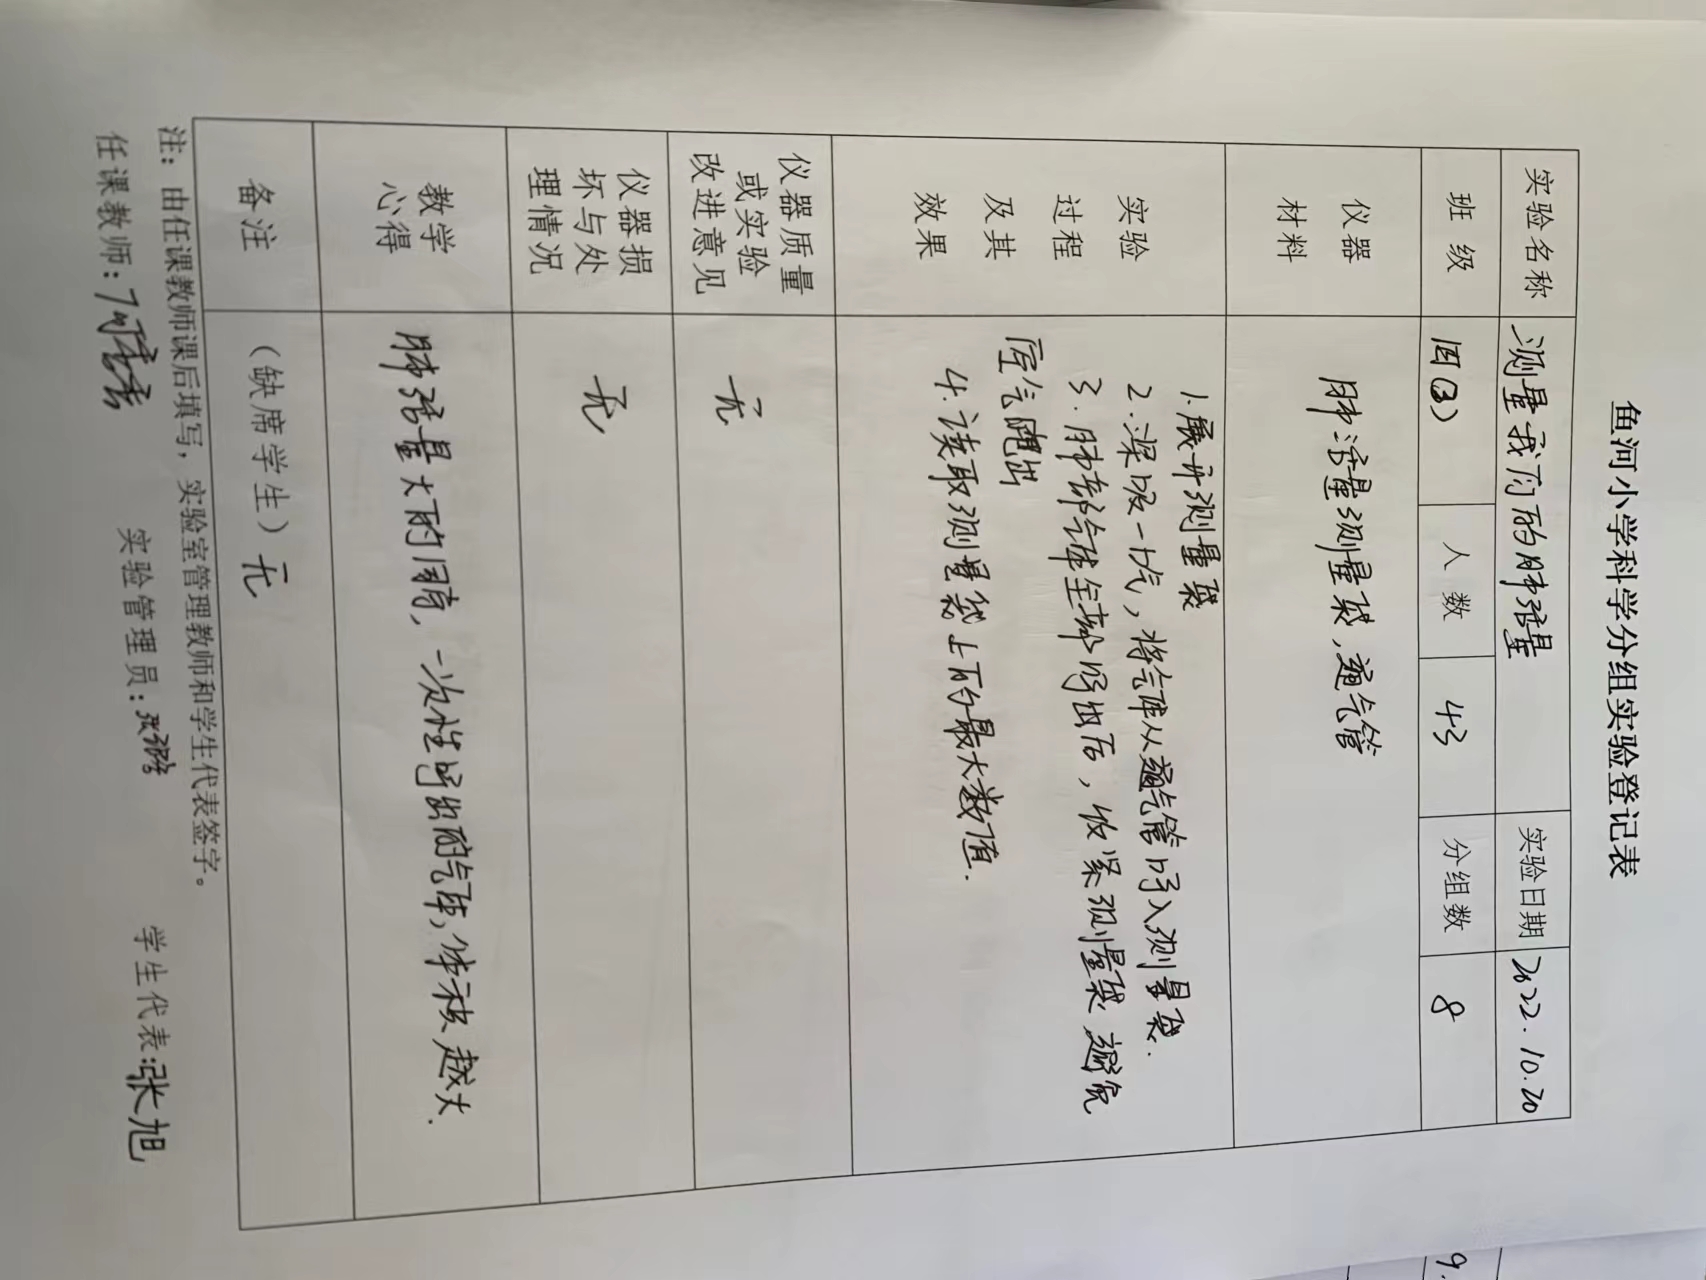 鱼河小学科学分组实验登记表
实验名称 测量我们的肺活量 实验日期 2022.10.20
班 级 四(3) 人 数 43 分组数 8
仪器
材料
肺活量测量袋,通气管
实验
过程
及其
效果
1.展开测量袋
2.深吸一口气,将气体从通气管呼入测量袋.
3.肺部气体全部呼出后,收紧测量袋避免
空气跑出
4.读取测量袋上的最大数值.
仪器质量
或实验
改进意见
无
仪器损
坏与处
理情况
无
教学
心得
肺活量大的同学,一次性呼出的气体,体积越大.
备注 (缺席学生)无
注:由任课教师课后填写,实验室管理教师和学生代表签字。
任课教师: 实验管理员:张 学生代表:张旭
9.